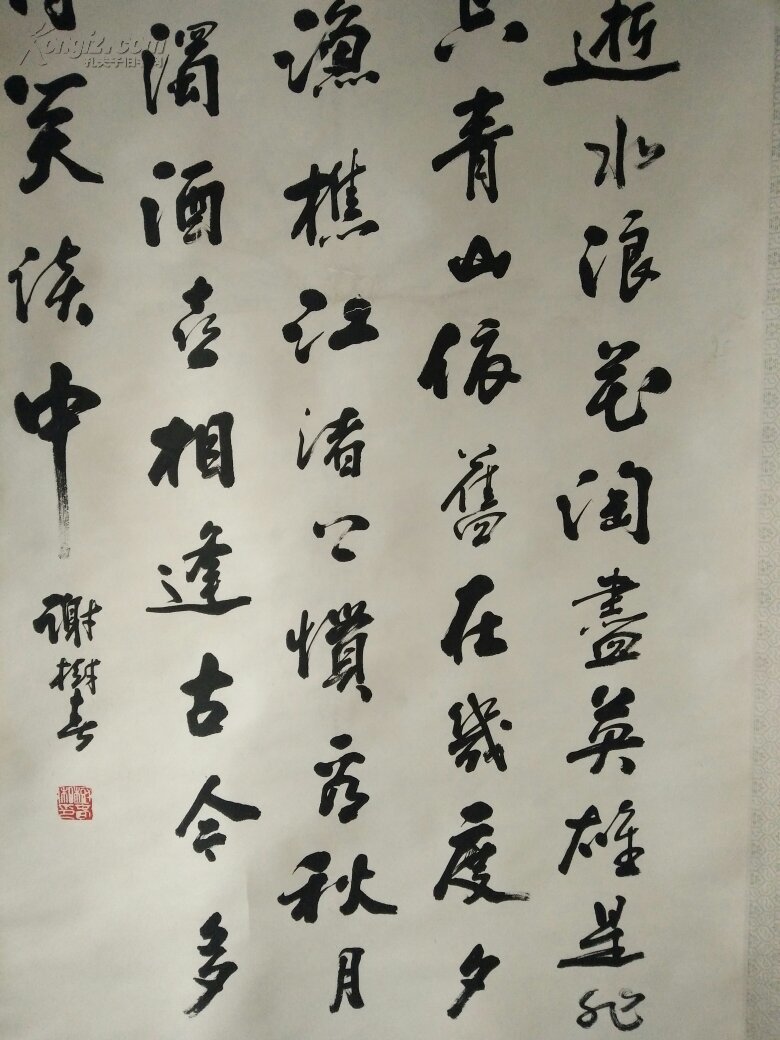 逝水浪花淘盡英雄是非
青山依舊在幾度夕
漁樵江渚上慣看秋月
濁酒喜相逢古今多
付笑談中
謝樹春
Kongfz.com
孔夫子旧书网